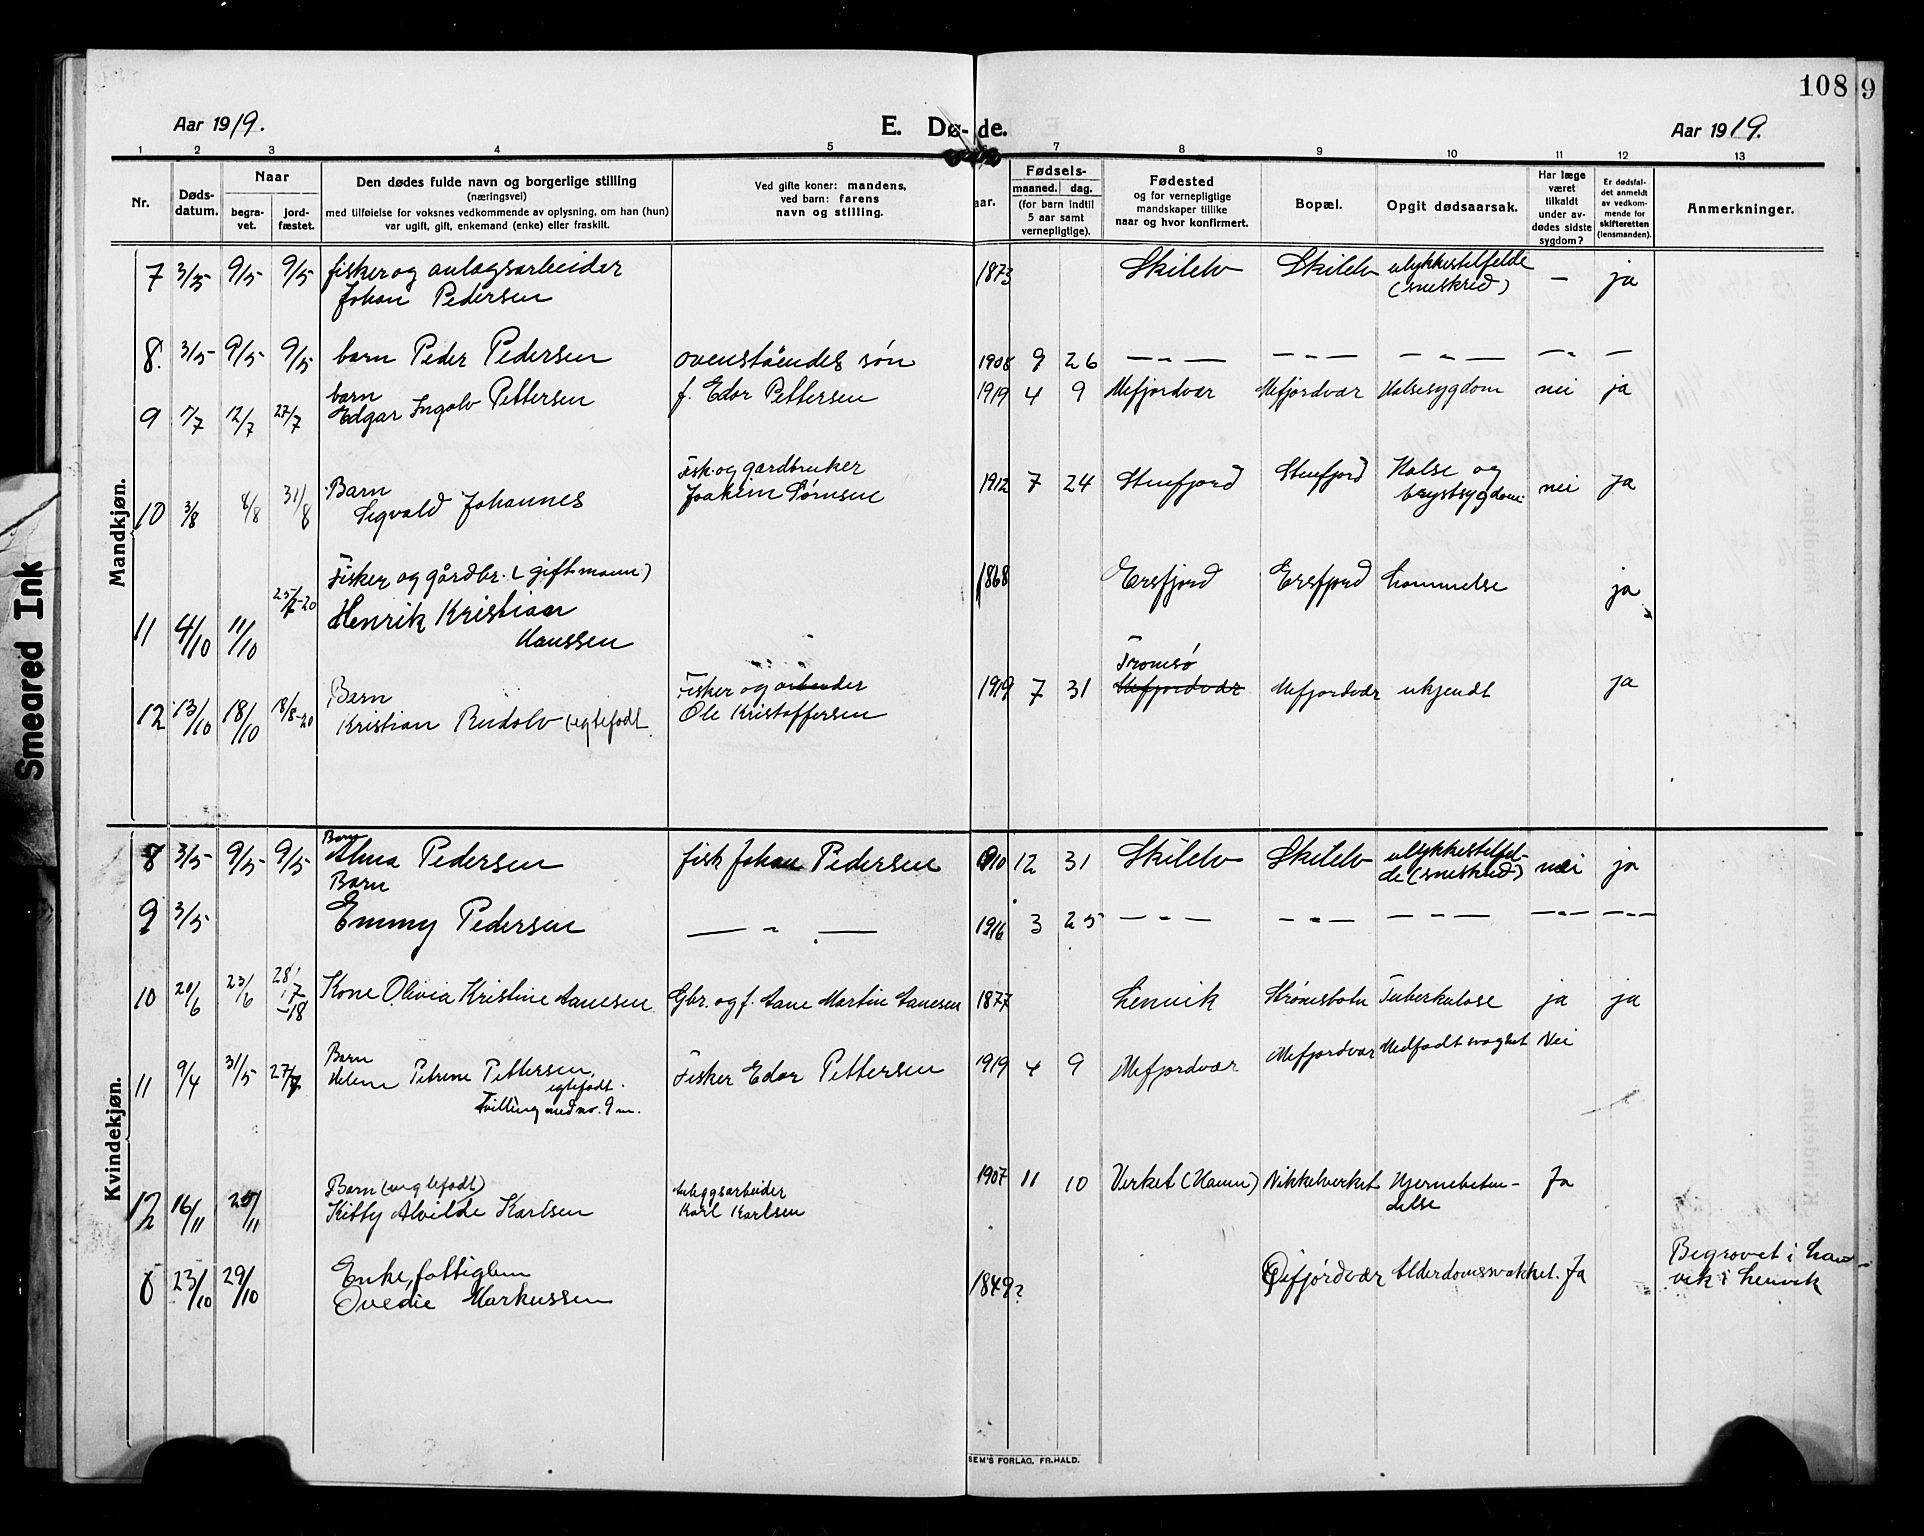 108 9
Aar 1919. E. Dø- de. Aar 1919.
1 2 3 4 5 7 8 9 10 11 12 13
Nr.
Døds-
datum.
Naar
begra-
vet.
jord-
fæstet.
Den dødes fulde navn og borgerlige stilling
(næringsvei)
med tilføielse for voksnes vedkommende av oplysning, om han (hun)
var ugift, gift, enkemand (enke) eller fraskilt.
Ved gifte koner: mandens,
ved barn: farens
navn og stilling.
aar.
Fødsels-
maaned. dag.
(for barn indtil
5 aar samt
vernepligtige).
Fødested
og for vernepligtige
mandskaper tillike
naar og hvor konfirmert.
Bopæl.
Opgit dødsaarsak.
Har læge
været
tilkaldt
under av-
dødes sidste
sygdom?
Er dødsfal-
det anmeldt
av vedkom-
mende for
skifteretten
(lensmanden).
Anmerkninger.
Mandkjøn.
7 3/5 9/5 9/5 fisker og anlægsarbeider 1873 Skilelv Skilelv ulykkestilfelde — ja
Johan Pedersen (sneskred)
8. 3/5 9/5 9/5 barn Peder Pedersen ovenståendes søn 1908 9 26 — " — — " — — " — — " — —
barn
9 7/7 12/7 27/7 Edgar Ingolv Pettersen f. Edor Pettersen 1919 4 9 Mefjordvær Mefjordvær Halsesygdom nei ja
Barn Fisk. og gardbruker Halse og
10 3/8 8/8 31/8 Sigvald Johannes Joakim Sørnsen 1912 7 24 Stenfjord Stenfjord brystsygdom nei ja
Fisker og gårdbr. (gift mann) 1868 Ersfjord Ersfjord ja
11 4/10 11/10 25/2-20 Henrik Kristian
Hanssen
Barn Fisker og arbeider Tromsø
12 13/10 18/10 18/8-20 Kristian Rudolv (egtefødt Ole Kristoffersen 1919 7 31 Mefjordvær Mefjordvær ukjendt ja
Kvindekjøn.
Barn
8 3/5 9/5 9/5 Alma Pedersen fisk Johan Pedersen 1910 12 31 Skilelv Skilelv ulykkestilfel-
de (sneskred) nei ja
Barn
9 3/5 Emmy Pedersen — " — 1916 3 25 — " — — " — — " — — " — — " —
10 20/6 23/6 28/7-18 Kone Olivia Kristine Aanesen Gbr. og f. Aane Martin Aanesen 1877 Lenvik Strømsbotn Tuberkulose ja ja
Barn
11 9/4 31/5 27/7 Helene Petrine Pettersen, Fisker Edor Pettersen 1919 4 9 Mefjordvær Mefjordvær Medfødt svaghet Nei
egtefødt.
Tvilling med no. 9 m.
Barn (uegtefødt) Anleggsarbeider 1907 11 10 Verket (Hamn) Nikkelverket Hjernebeten-
delse Ja
12 16/11 25/11 Kitty Alvilde Karlsen Karl Karlsen
Enke, fattiglem
8 23/10 29/10 Ovedie Markussen 1849? Øifjordvær Alderdomssvakket. Ja Begravet i
vik i Lenvik
SEM'S FORLAG, FR.HALD.
Smeared Ink